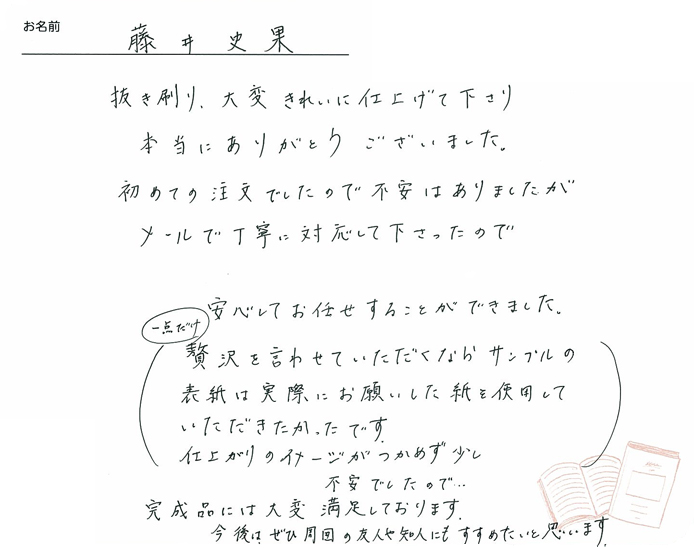 お名前
藤井史果
抜き刷り、大変きれいに仕上げて下さり
本当にありがとうございました。
初めての注文でしたので不安はありましたが
メールで丁寧に対応して下さったので
安心してお任せすることができました。
一点だけ
贅沢を言わせていただくならサンプルの
表紙は実際にお願いした紙を使用して
いただきたかったです。
仕上がりのイメージがつかめず少し
不安でしたので…
完成品には大変満足しております。
今後はぜひ周囲の友人や知人にもすすめたいと思います。